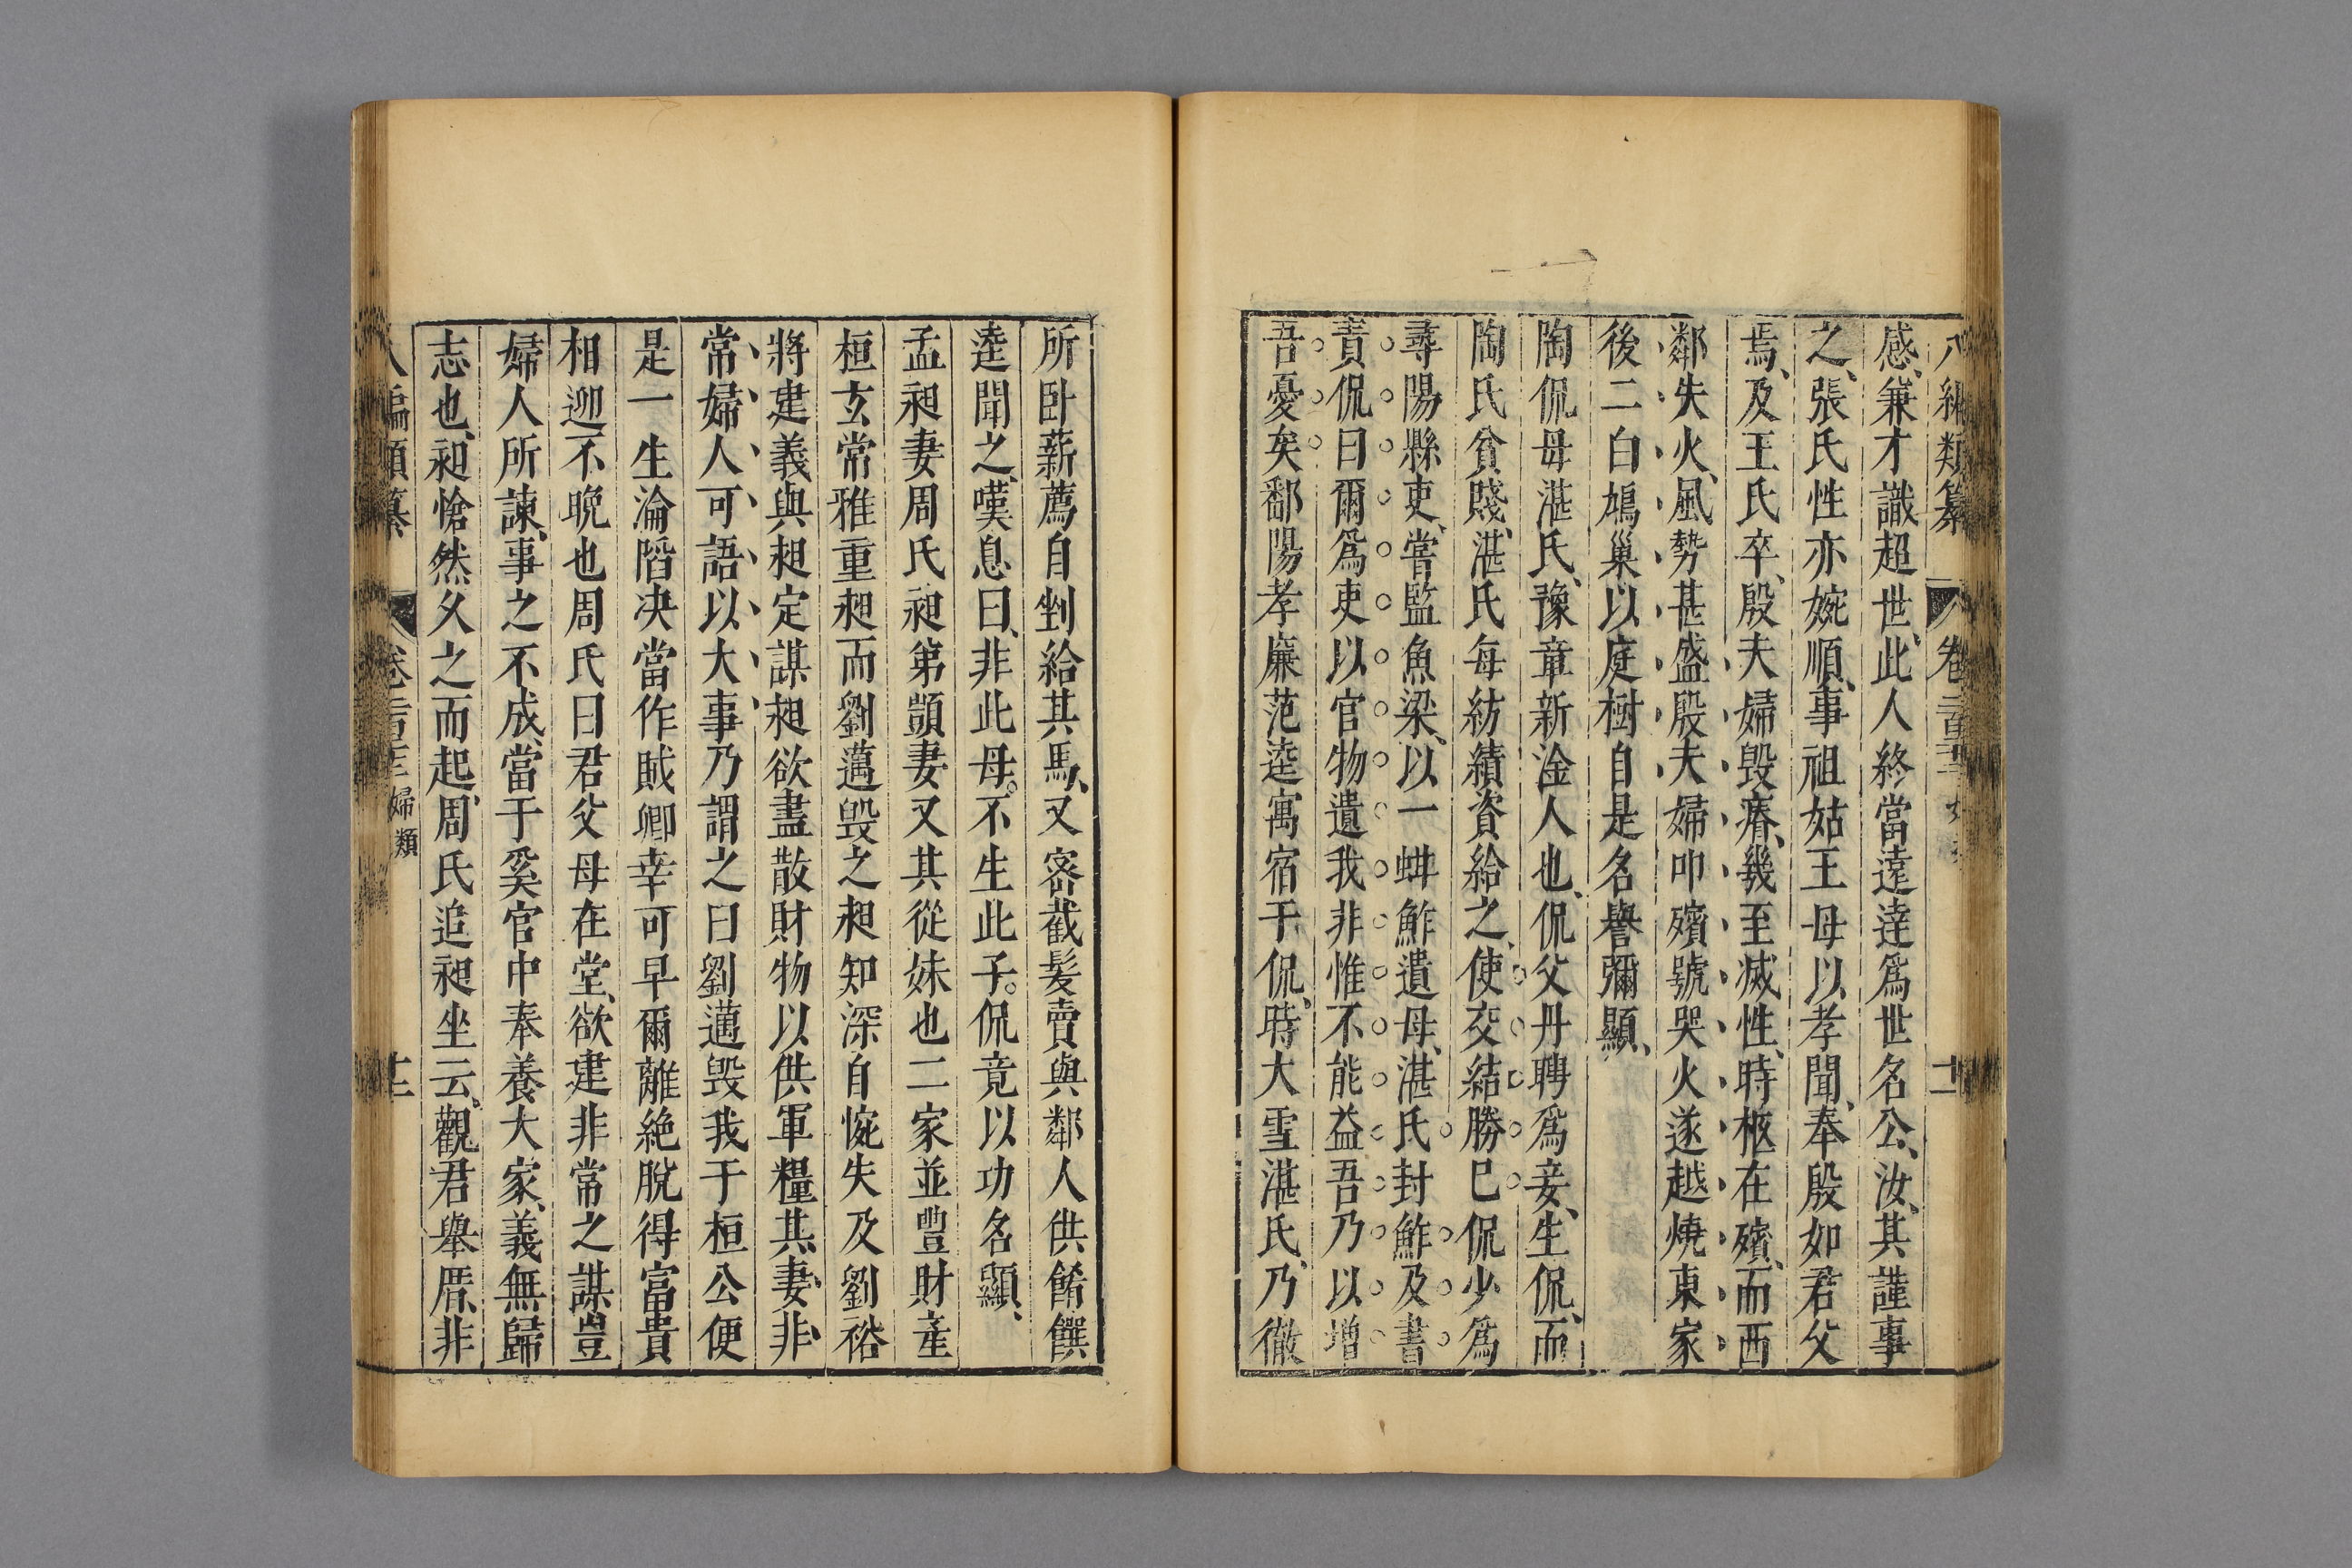 八編類纂 卷二百 十一
感、兼才識超世、此人終當遠達爲世名公、汝其謹事
之、張氏性亦婉順、事祖姑王母以孝聞、奉殷如君父
焉、及王氏卒、殷夫婦毀瘠、幾至滅性、時柩在殯、而西
鄰失火、風勢甚盛殷夫婦叩殯號哭火遂越燒東家
後二白鳩巢以庭樹自是名譽彌顯、
陶侃母湛氏、豫章新淦人也、侃父丹聘爲妾、生侃、而
陶氏貧賤、湛氏每紡績資給之、使交結勝巳侃少爲
尋陽縣吏、嘗監魚梁、以一蚶鮓遺母、湛氏封鮓及書
責侃曰爾爲吏以官物遺我非惟不能益吾乃以增
吾憂矣鄱陽孝廉范逵寓宿于侃、時大雪湛氏、乃徹
所卧薪薦自剉給其馬、又密截髮賣與鄰人供餚饌
逵聞之、嘆息曰、非此母。不生此子。侃竟以功名顯、
孟昶妻周氏昶弟顗妻又其從妹也二家並豐財産
桓玄常雅重昶而劉邁毀之昶知深自惋失及劉裕
將建義與昶定謀昶欲盡散財物以供軍糧其妻非
常婦人可語以大事乃謂之曰劉邁毀我于桓公便
是一生淪陷决當作賊卿幸可早爾離絶脫得富貴
相迎不晩也周氏曰君父母在堂、欲建非常之謀豈
婦人所諫、事之不成、當于奚官中奉養大家、義無歸
志也、昶愴然久之而起、周氏追昶坐云、觀君舉厝、非
八編類纂 卷 婦類 十二